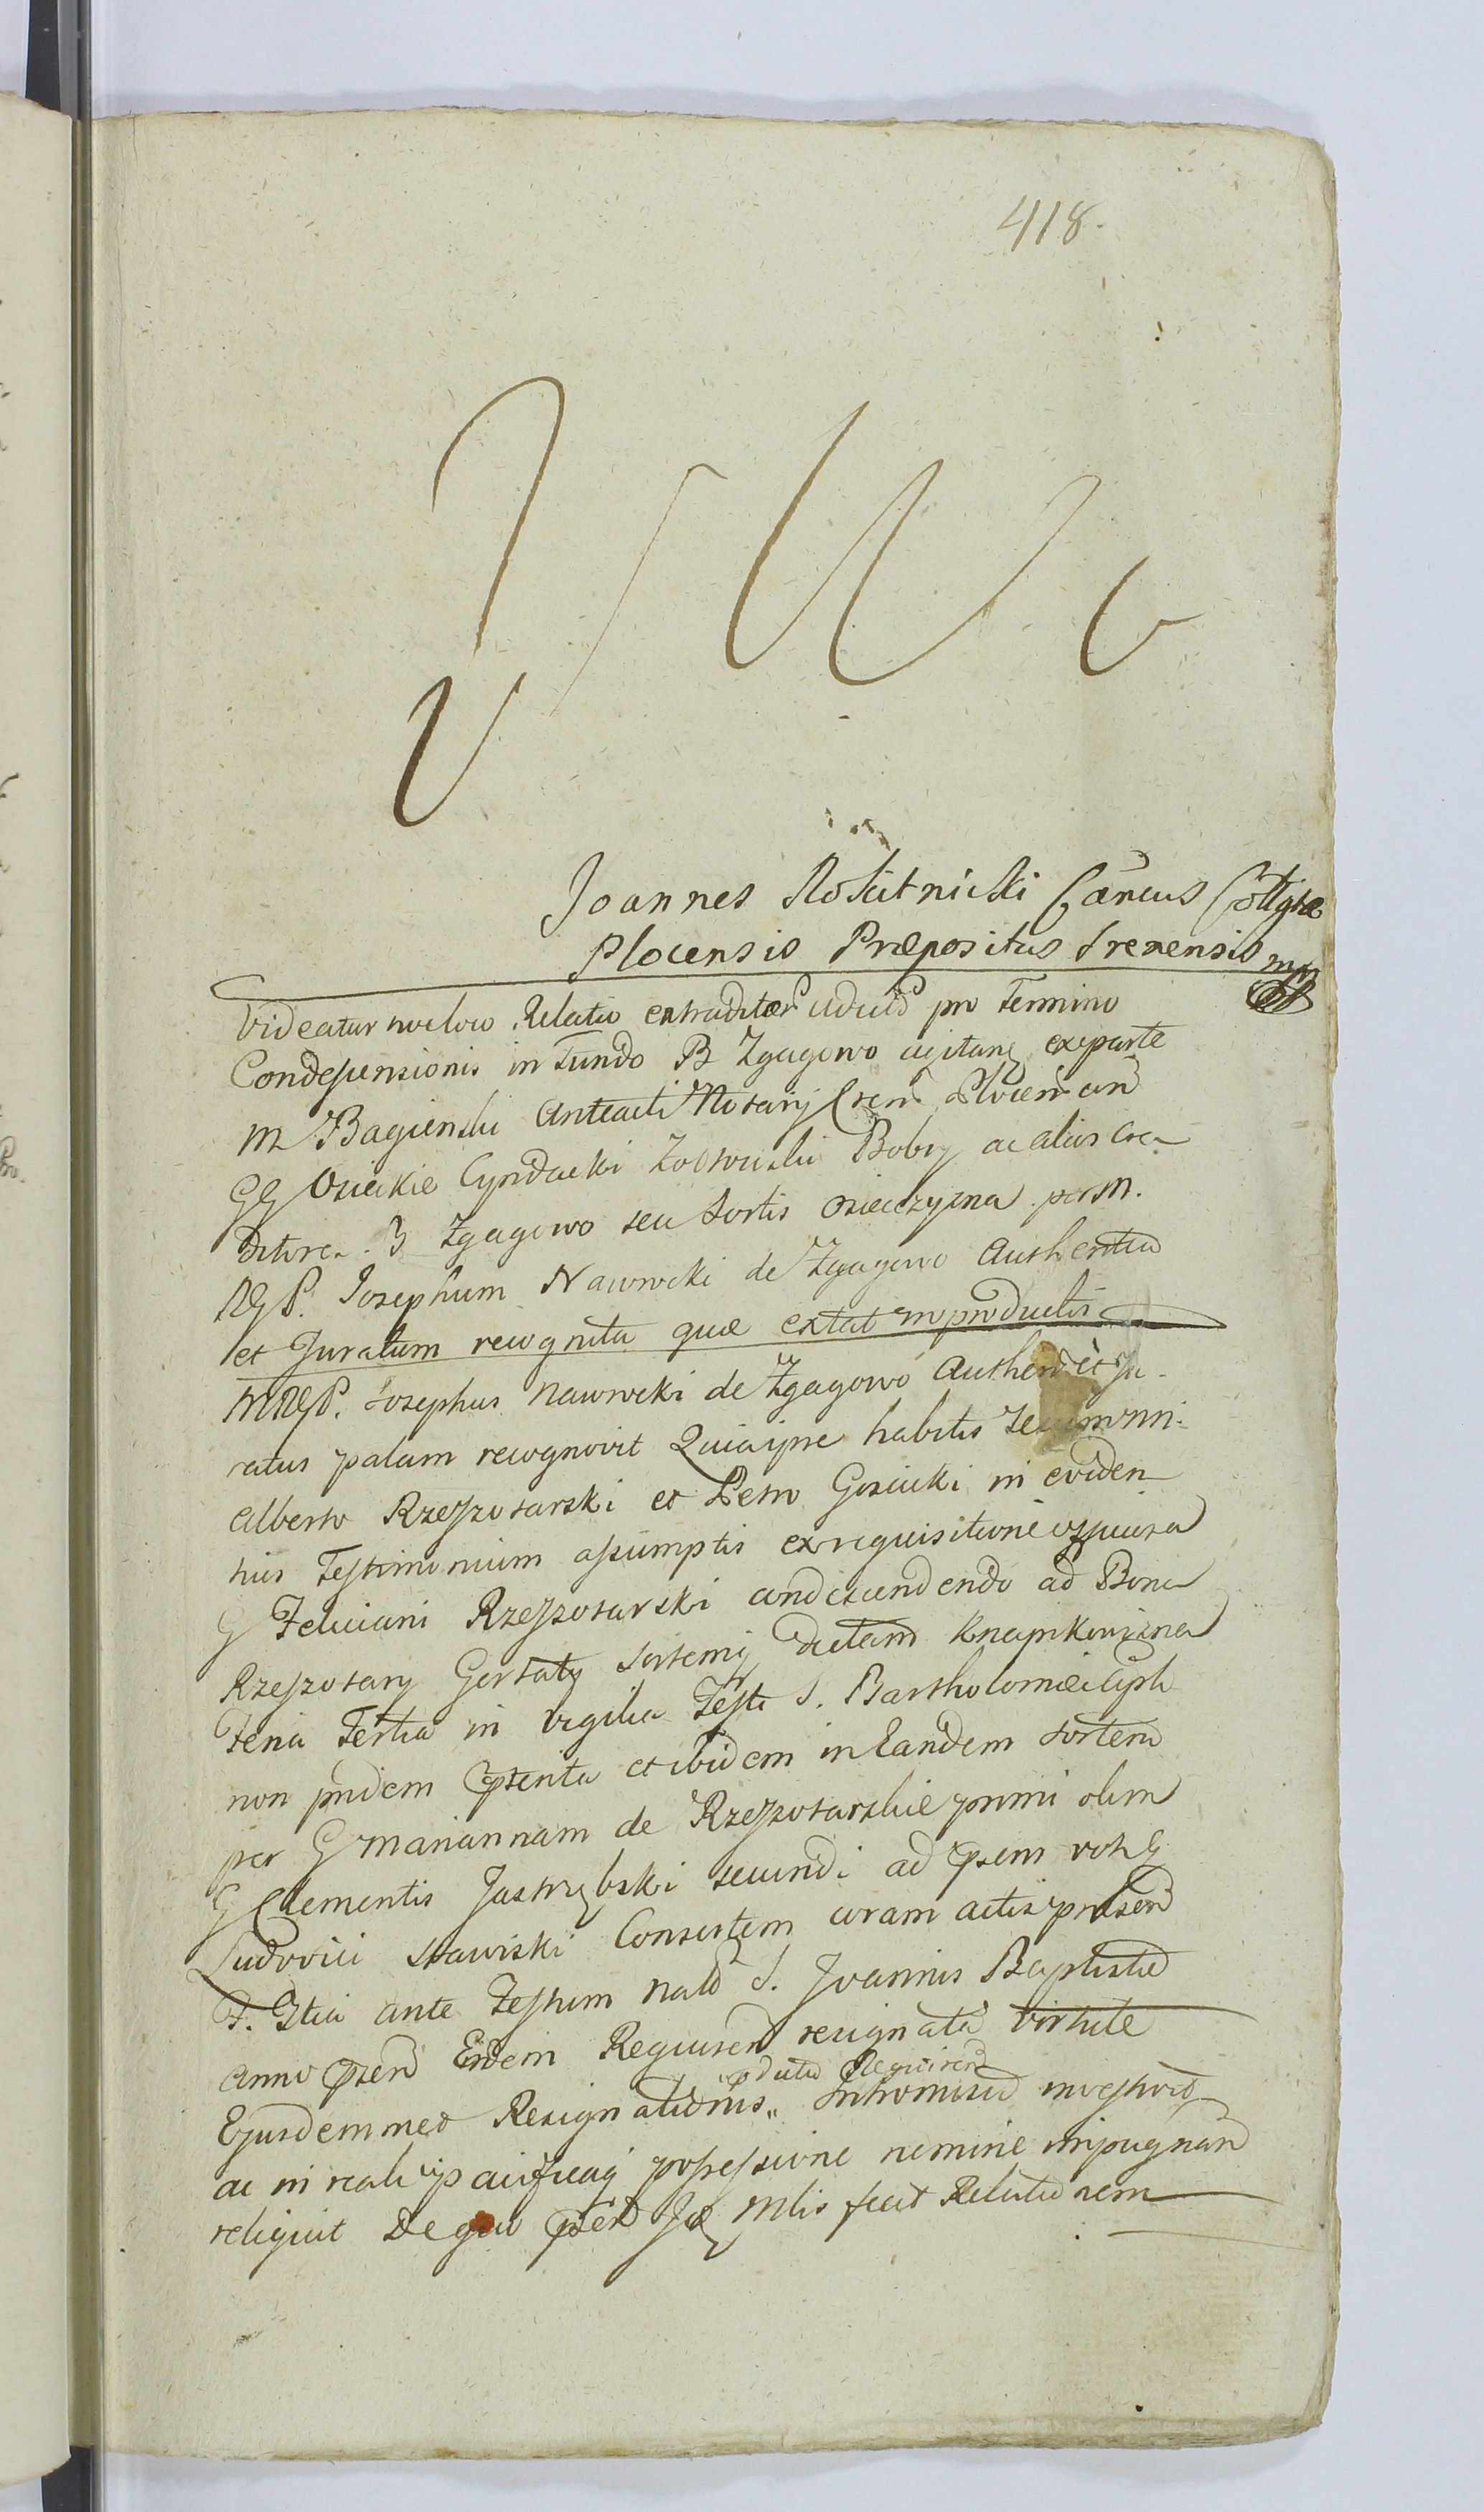 418.
Joannes Rokitnicki Cancus Colligtæ
Plocensis Præpositus Srenensis mp
Videatur hoc loco Relatio extraditæ pro Termino
Condescensionis in Fundo B Zgagowo agitan ex parte
M Bagienski Anteacti Notarij Plocen
GG Osieckie Cyndacki Zołtowski Bobry ac alior Cre-
ditore. B Zgagowo seu Sortis Osiecczyzna per M.
R G P. Josephum Nawrocki de Zgagowo Authentu
et Juratum recognita quæ extat in productis
MRGP. Josephus Nawrocki de Zgagowo Authen et Ju-
ratus palam recognovit Quia ipse habitis Secum NN.
Alberto Rzeszotarski et Petro Gosiccki in eviden
tius Testimonium assumptis ex requisitione
G Feliciani Rzeszotarski condescendendo ad Bona
Rzeszotary Gortaty Sortemq dictam Knapkowizna
Feria Tertia in Vigilia Festi S. Bartholomæi Apli
non pridem et ibidem in Eandem Sortem
per G Mariannam de Rzeszotarskie primi olim
G Clementis Jastrzębski secundi ad psens voti G
Ludovici Stawiski Consortem coram actis præsen
F. 3tia ante Festum Nati S. Joannis Baptistæ
Anno psen Eidem Requiren resignata virtute
Requiren
Ejusdemmet Resignationis Intromisit
ac in reali pacificaq possessione nemine impugnan
reliquit De quo psen Mlis fecit Relationem